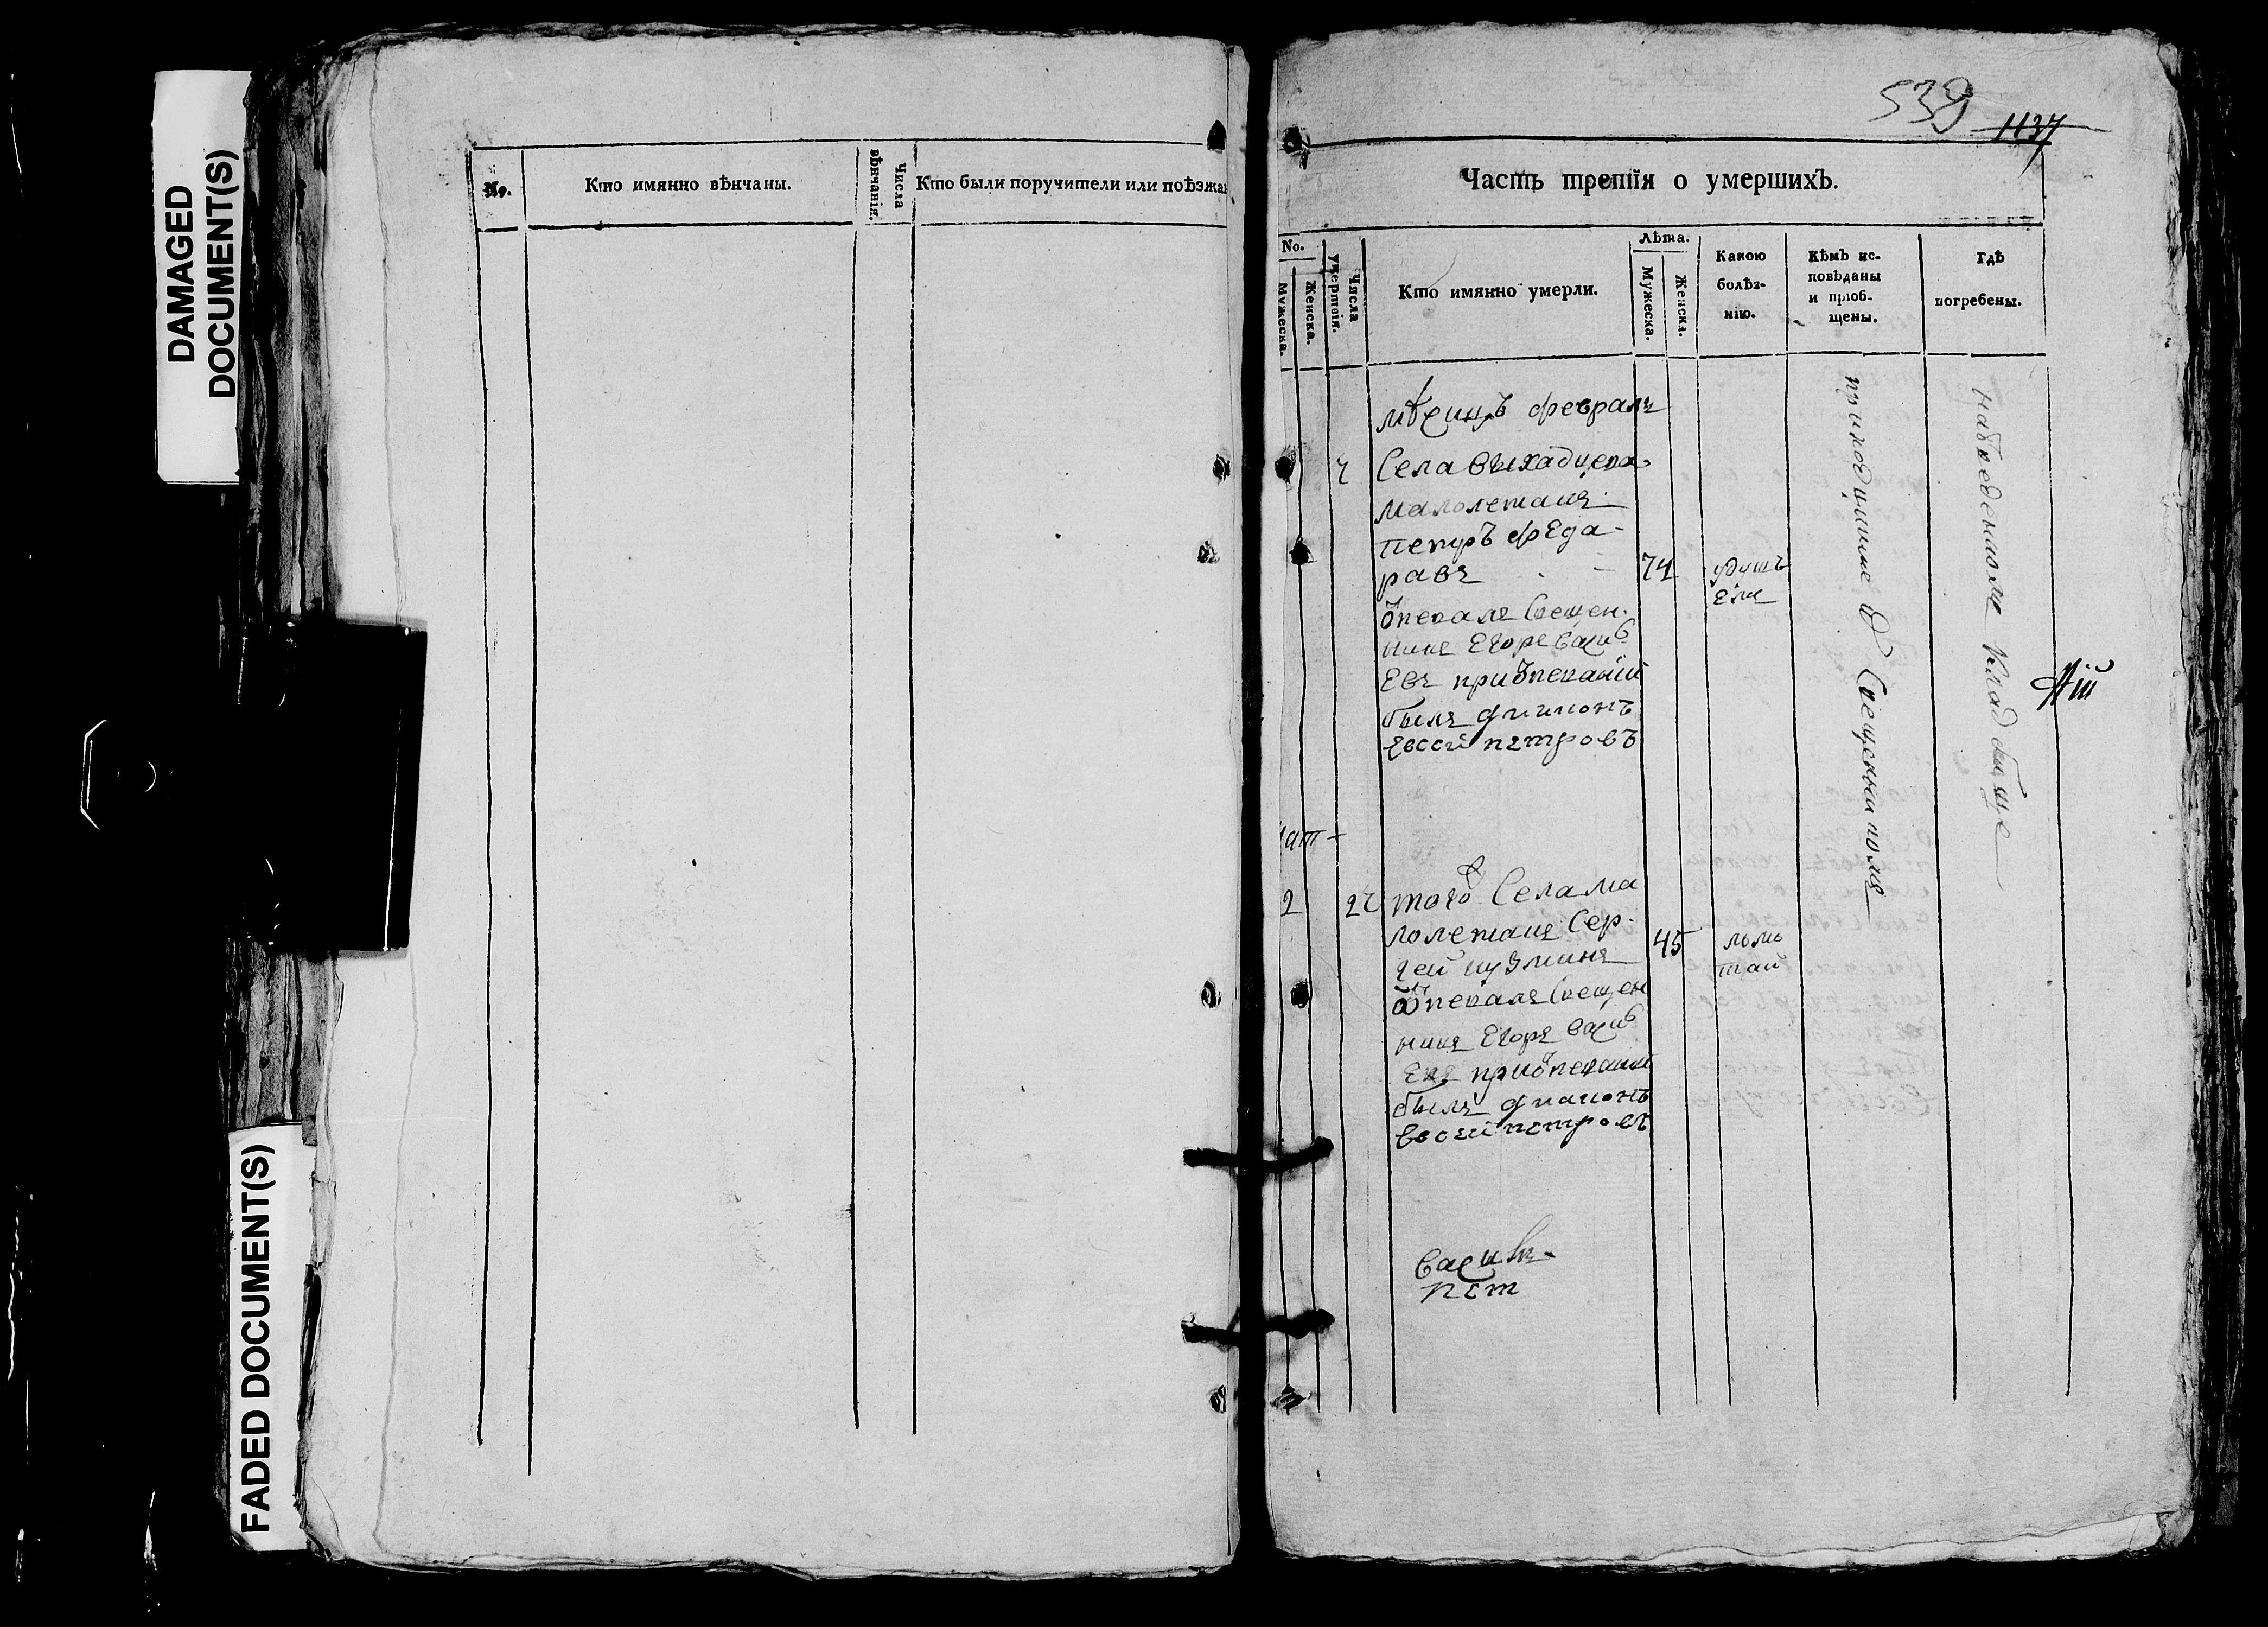 DAMAGED
DOCUMENT(S)
FADED DOCUMENT(S)
№.
Кто имянно вѣнчаны.
Числа
вѣнчанія.
Кто были поручители или поѣзжа
539
1137
Часть третія о умершихъ.
No.
Мужеска.
Женска.
Числа
умертвія.
Кто имянно умерли.
Лѣта.
Мужеска.
Женска.
Какою
болѣз-
нію.
Кѣмъ ис-
повѣданы
и пріоб-
щены.
Гдѣ
погребены.
мѣсицъ февраля
Села выхадцева
малолетаця
петръ феда-
равъ
74
ѿпевалъ Свещен-
никъ Егоръ васиь
евъ приѿпеваніи
былъ диıаконъ
евсѣй петровъ
приходцкиме
Свещеникомъ
кладбище
2
того Села ма
лолетаця Сер-
гей кузминъ
45
ломо
тай
ѿпевалъ Свещен
никъ Егоръ васиь
евъ приѿпеваніи
былъ диıаконъ
евсей петровъ
васиь
пет